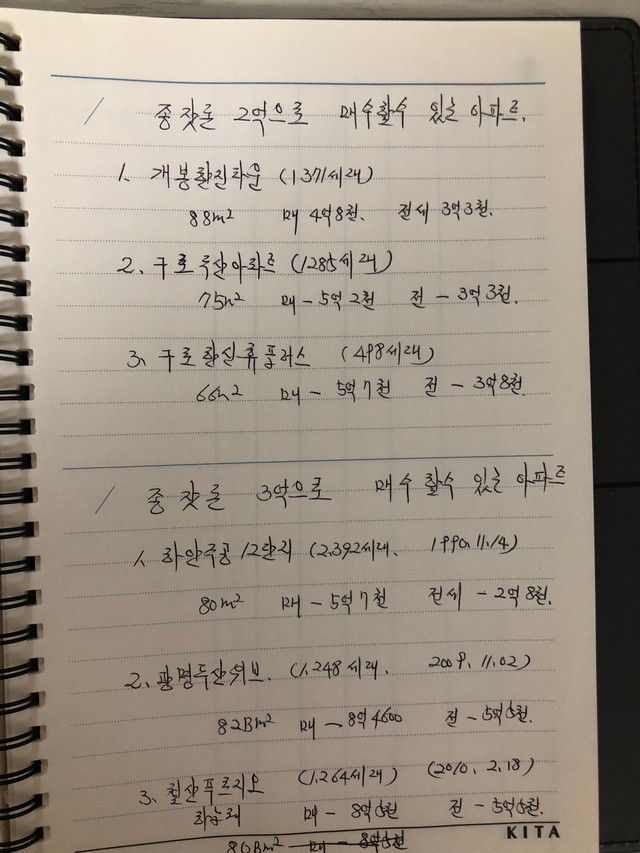 / 종잣돈 2억으로 매수할수 있는 아파트.
1. 개봉한진타운 (1371세대)
88m² 매 4억8천. 전세 3억3천.
2. 구로두산아파트 (1285세대)
75m² 매 - 5억2천 전 - 3억3천.
3. 구로한신휴플러스 (498세대)
66m² 매 - 5억7천 전 - 3억8천.
/ 종잣돈 3억으로 매수 할수 있는 아파트
1. 하안주공 12단지 (2,392세대, 1990.11.14)
80m² 매 - 5억7천 전세 - 2억8천.
2. 광명두산위브. (1,248세대, 2009.11.02)
82Bm² 매 - 8억4600 전 - 5억5천.
3. 철산푸르지오 (1,264세대) (2010. 2.18)
하늘채 매 - 8억5천 전 - 5억5천.
80Bm² 매 - 8억5천
KITA